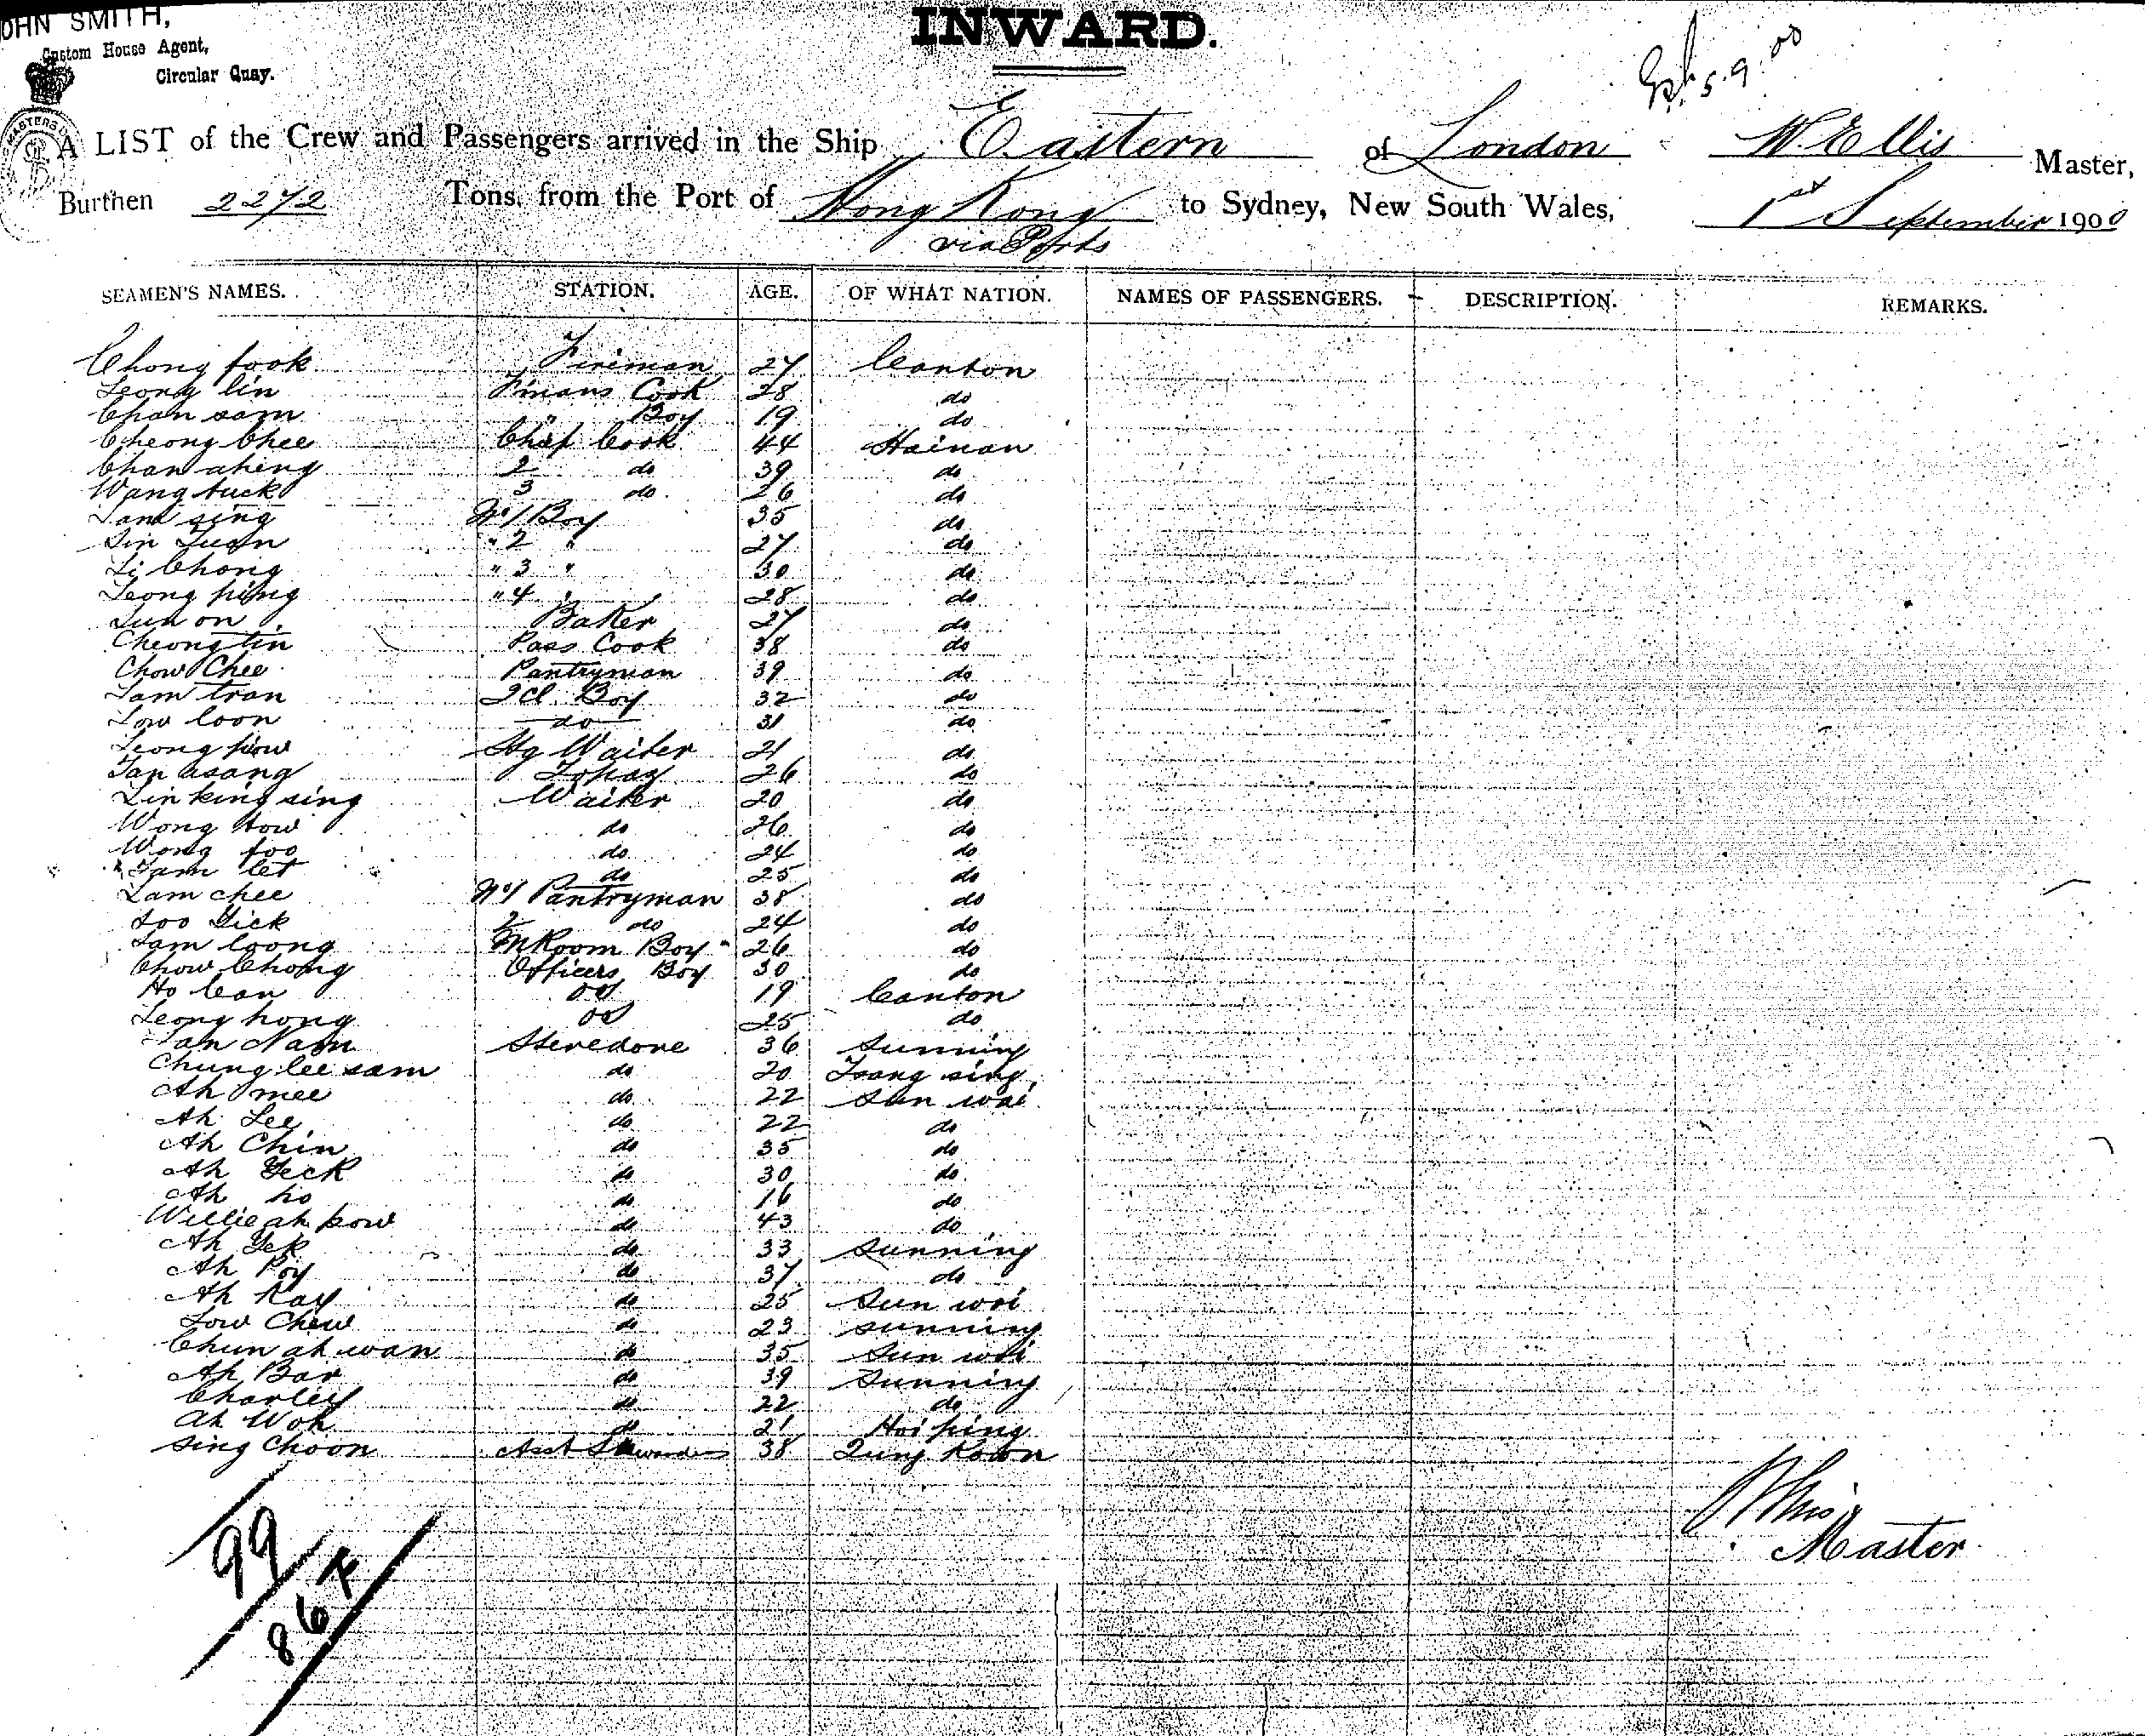 JOHN SMITH,
Custom House Agent,
Circular Quay.
INWARD.
5.9.00
A LIST of the Crew and Passengers arrived in the Ship Eastern of London W. Ellis Master,
Burthen 2272 Tons, from the Port of Hong Kong to Sydney, New South Wales, 1st September 1900
via Ports
SEAMEN'S NAMES. STATION. AGE. OF WHAT NATION. NAMES OF PASSENGERS. DESCRIPTION. REMARKS.
Chong fook Fireman 27 Canton
Leong lin F'mans Cook 28 do
Chan sam " Boy 19 do
Cheong Chee Chief Cook 44 Hainan
Chan aheng 2 do 39 do
Wang tuck 3 do 26 do
Tam sing No 1 Boy 35 do
Sin Tuan " 2 " 27 do
Li Chong " 3 " 30 do
Leong ping " 4 " 28 do
Sun on Baker 27 do
Cheong tin Pass Cook 38 do
Chow Chee Pantryman 39 do
Tam tran 2 Cl. Boy 32 do
Low loon do 31 do
Leong pow Stg Waiter 21 do
Tan asang Topay 26 do
Lin king sing Waiter 20 do
Wong tow do 26 do
Wong foo do 24 do
Tam let do 25 do
Lam chee No 1 Pantryman 38 do
Soo Yick 2 do 24 do
Tam loong M Room Boy 26 do
Chow Chong Officers Boy 30 do
Ho Can do 19 Canton
Leong hong do 25 do
Tan Nam Stevedore 36 Sunning
Chung lee sam do 20 Tsang sing
Ah mee do 22 Sun woi
Ah Lee do 22 do
Ah Chin do 35 do
Ah Yeck do 30 do
Ah ho do 16 do
Willie ah pow do 43 do
Ah Yek do 33 Sunning
Ah Poy do 37 do
Ah Kay do 25 Sun woi
Low Chew do 23 Sunning
Chun ah wan do 35 Sun woi
Ah Bar do 39 Sunning
Charley do 22 do
Ah Woh do 21 Hoi ping
Sing Choon Asst Stewards 38 Tung Koon
99
86
Master